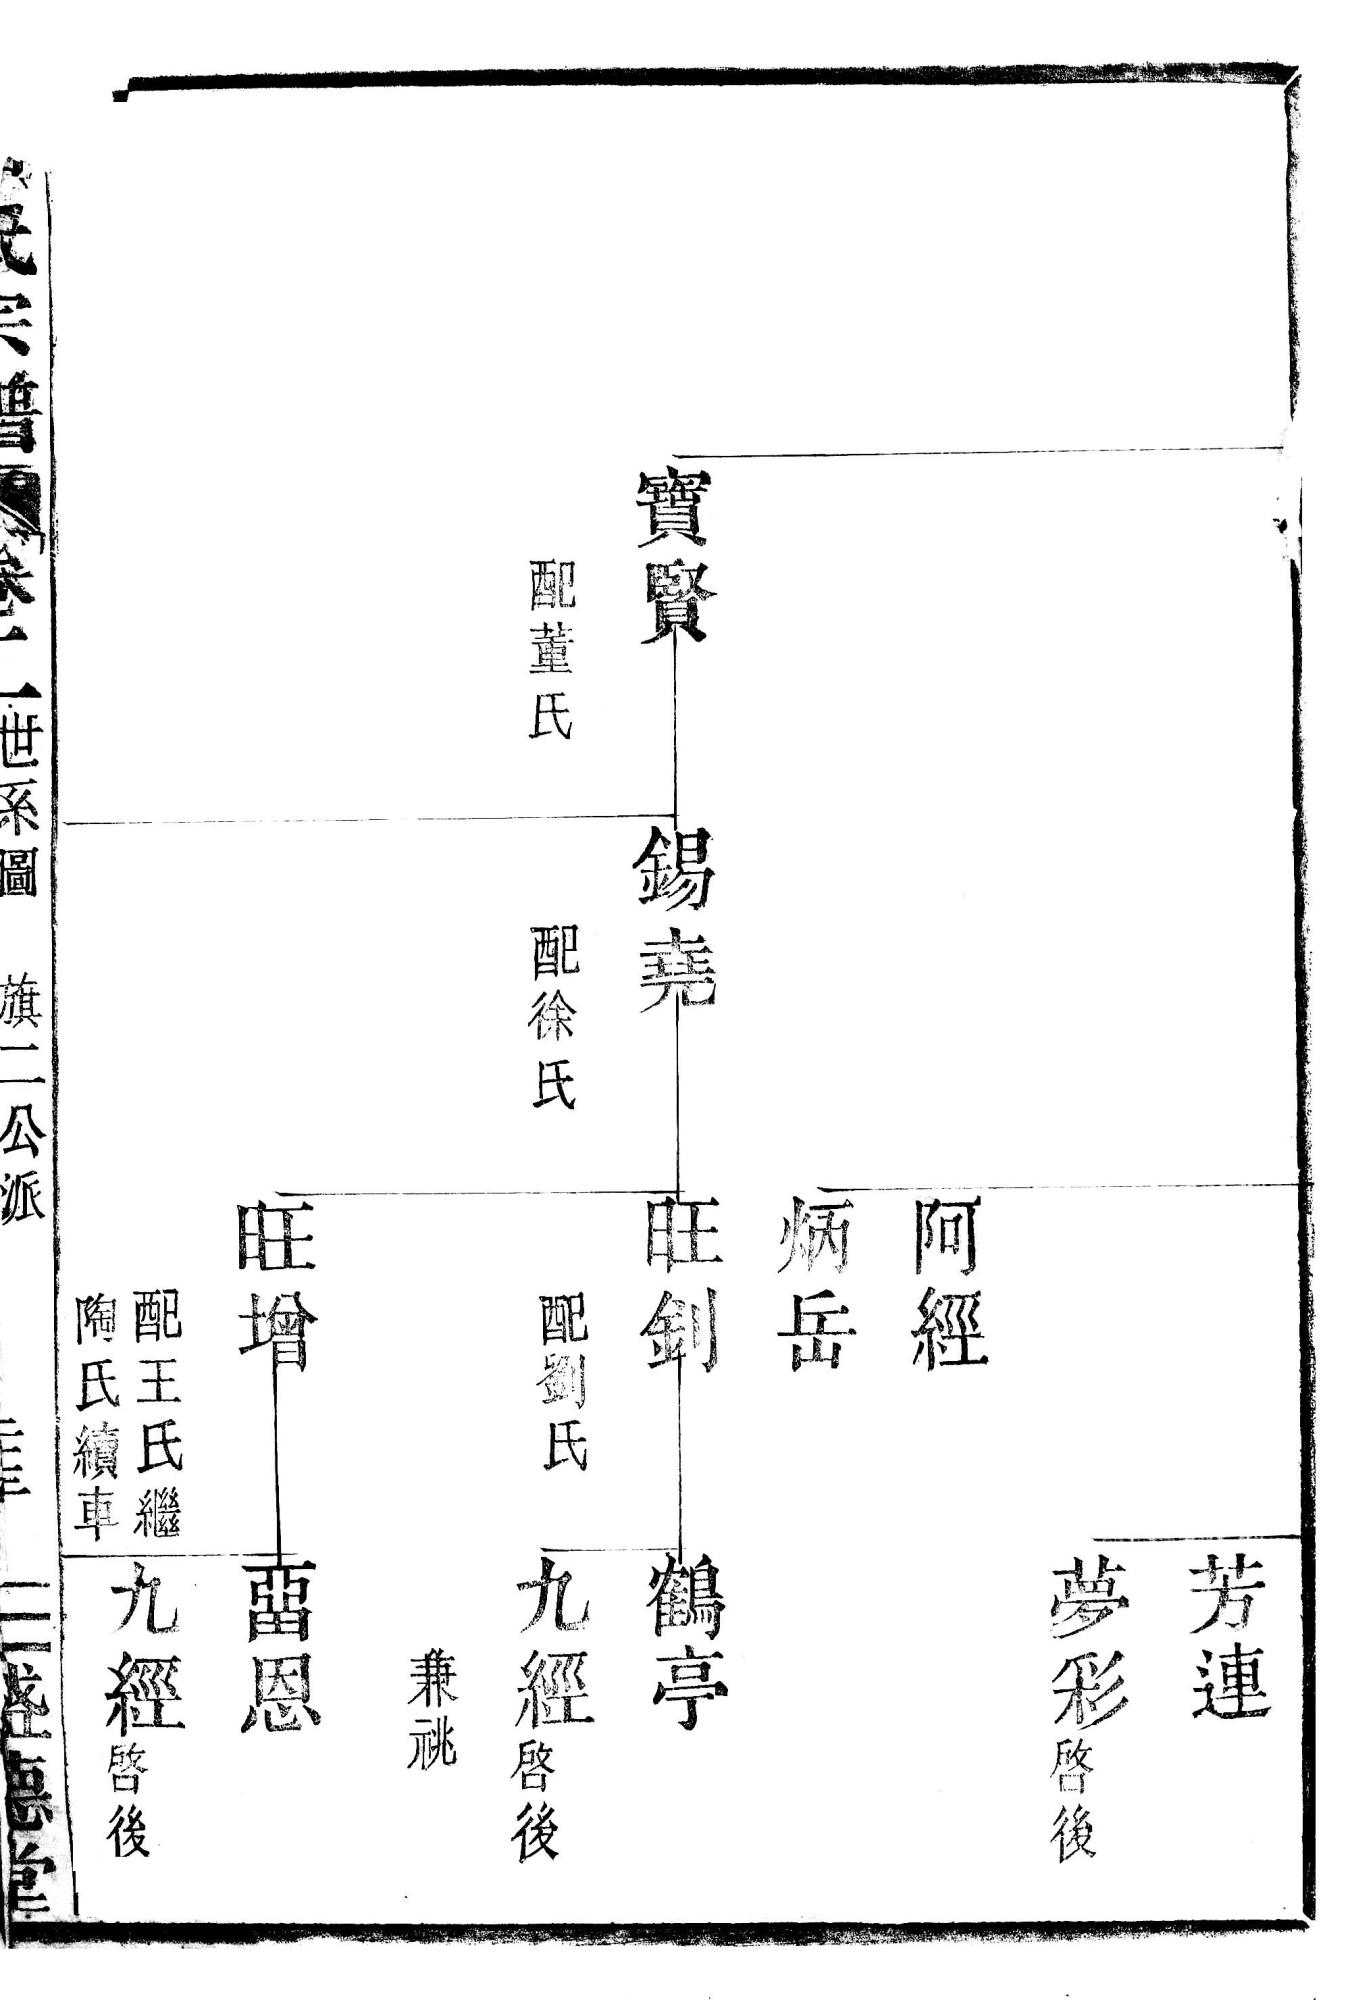 芳連
夢彩啓後
阿經
炳岳
寶賢
配董氏
錫堯
配徐氏
旺釗
配劉氏
鶴亭
兼祧
九經啓後
旺增
配王氏繼
陶氏續車
畱恩
九經啓後
氏宗譜
世系圖
旗二公派
盛德堂